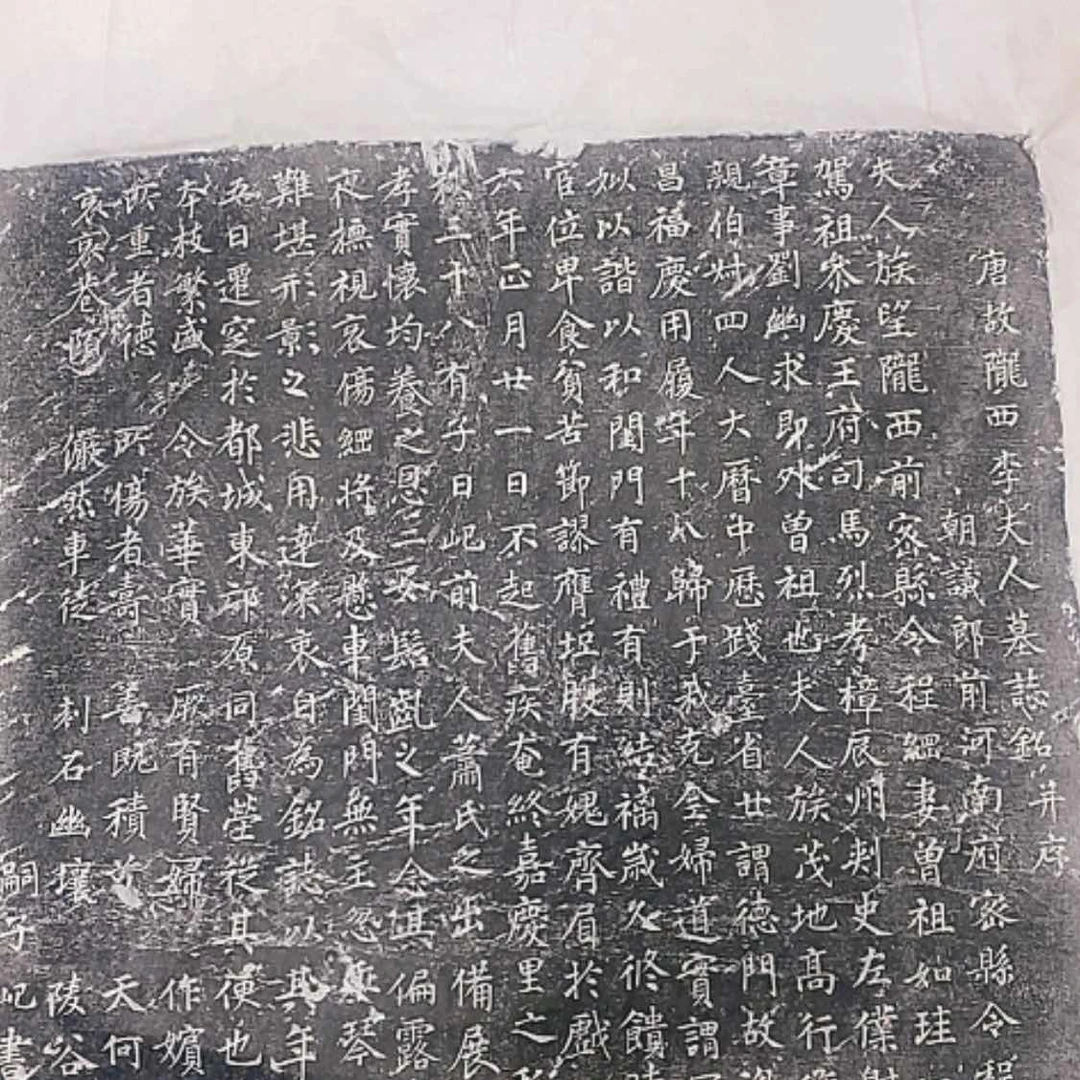 唐故隴西李夫人墓誌銘并序
朝議郎前河南府密縣令程
夫人族望隴西前密縣令程綱妻曾祖如珪
駕祖叅慶王府司馬烈考樟辰州刺史左僕射
章事劉幽求即外曾祖也夫人族茂地高行
親伯村四人大曆中歷踐臺省廿謂德門故
昌福慶用履年十八歸于我克全婦道實謂
姒以諧以和閨門有禮有則結褵歲久修饋
官位卑食貧苦節謬膺垢服有媿齊眉於戲
六年正月廿一日不起舊疾奄終嘉慶里之
三十八有子曰屺前夫人蕭氏之出備展
孝實懷均養之恩三女髫齔之年念其偏露
夜撫視哀傷綱將及懸車閨門無主忽棄琴
難堪形影之悲用達深衷自為銘誌以其年
五日遷窆於都城東祁原同舊塋從其便也
本枝繁盛 令族華實 厥有賢婦 作嬪
所重者德 所傷者壽 善旣積 天何
哀哀巷頤 儼然車徒 刻石幽壤 陵谷
嗣子屺書